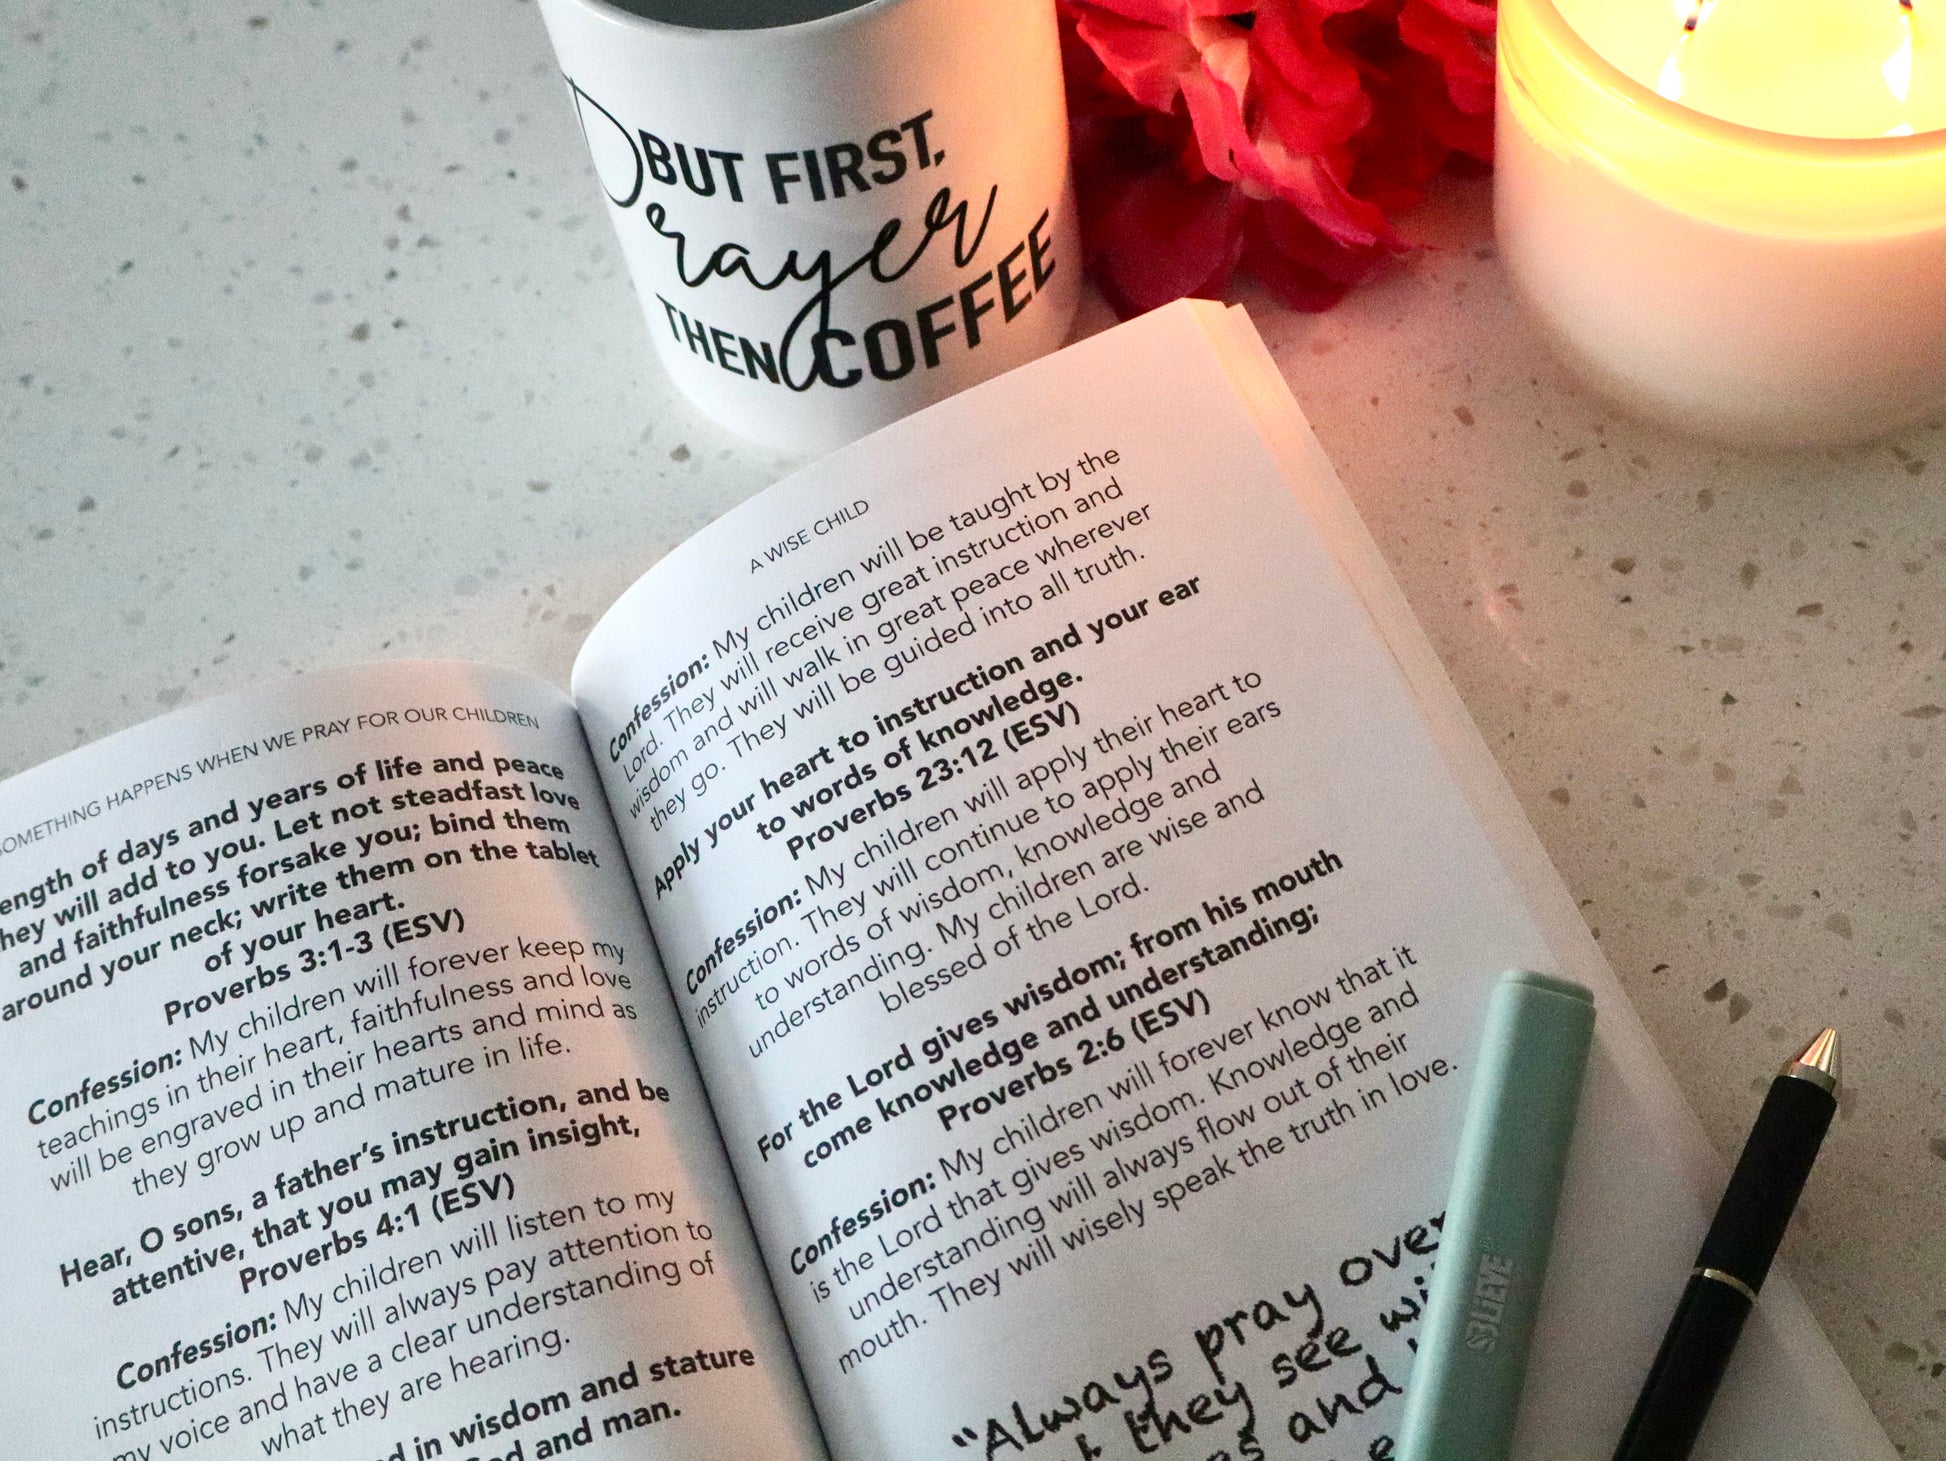 BUT FIRST,
Prayer
THEN COFFEE
SOMETHING HAPPENS WHEN WE PRAY FOR OUR CHILDREN
of days and years of life and peace
will add to you. Let not steadfast love
and faithfulness forsake you; bind them
around your neck; write them on the tablet
of your heart.
Proverbs 3:1-3 (ESV)
Confession: My children will forever keep my
teachings in their heart, faithfulness and love
will be engraved in their hearts and mind as
they grow up and mature in life.
Hear, O sons, a father's instruction, and be
attentive, that you may gain insight,
Proverbs 4:1 (ESV)
Confession: My children will listen to my
instructions. They will always pay attention to
my voice and have a clear understanding of
what they are hearing.
in wisdom and stature
and man.
A WISE CHILD
Confession: My children will be taught by the
Lord. They will receive great instruction and
wisdom and will walk in great peace wherever
they go. They will be guided into all truth.
Apply your heart to instruction and your ear
to words of knowledge.
Proverbs 23:12 (ESV)
Confession: My children will apply their heart to
instruction. They will continue to apply their ears
to words of wisdom, knowledge and
understanding. My children are wise and
blessed of the Lord.
For the Lord gives wisdom; from his mouth
come knowledge and understanding;
Proverbs 2:6 (ESV)
Confession: My children will forever know that it
is the Lord that gives wisdom. Knowledge and
understanding will always flow out of their
mouth. They will wisely speak the truth in love.
"Always pray over
they see
and